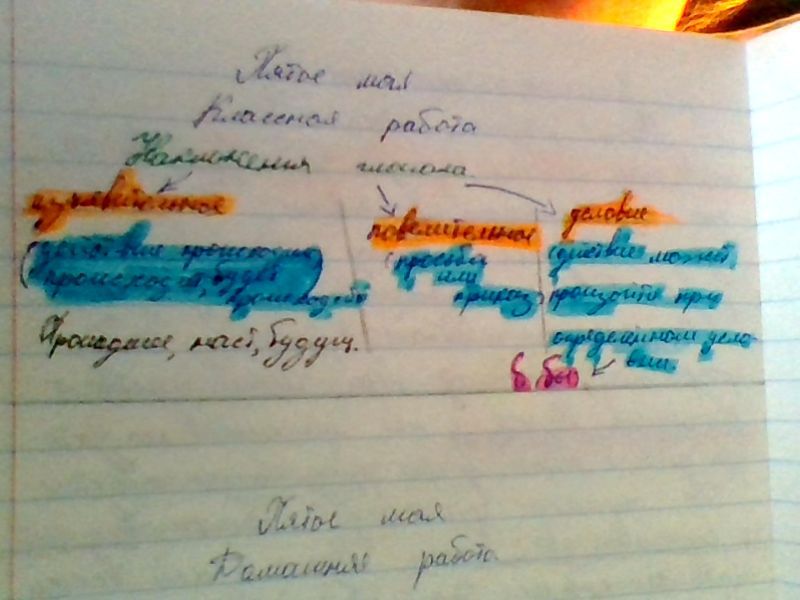 Пятое мая
Классная работа
Наклонения глагола.
изъявительное
(действие происходило
происходит, будет
происходить
Прошедшее, наст, будущ.
повелительное
(просьба
или
приказ)
условие
(действие может,
произойти при
определённом усло-
вии.
б, бы
Пятое мая
Домашняя работа.